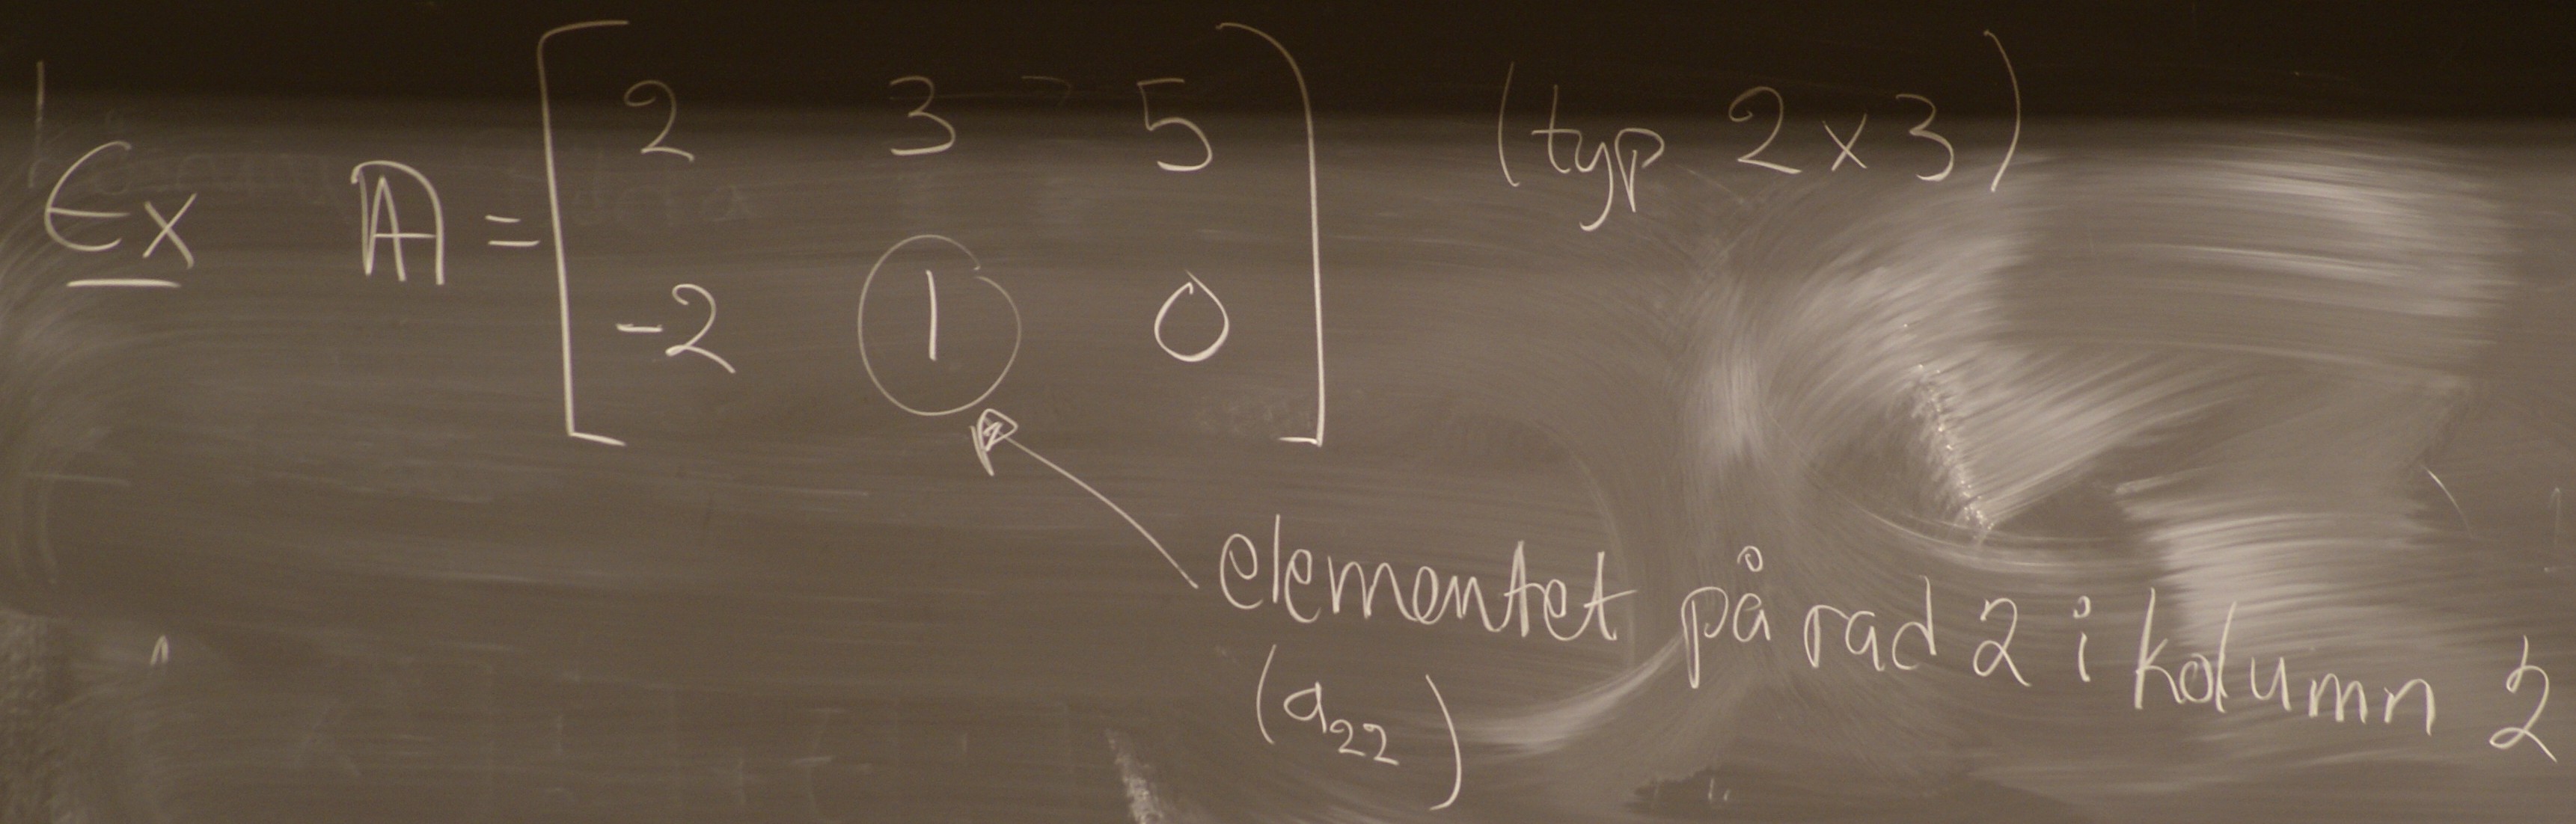 Ex A = [ 2 3 5 (typ 2 x 3)
-2 1 0 ]
elementet på rad 2 i kolumn 2
(a22)